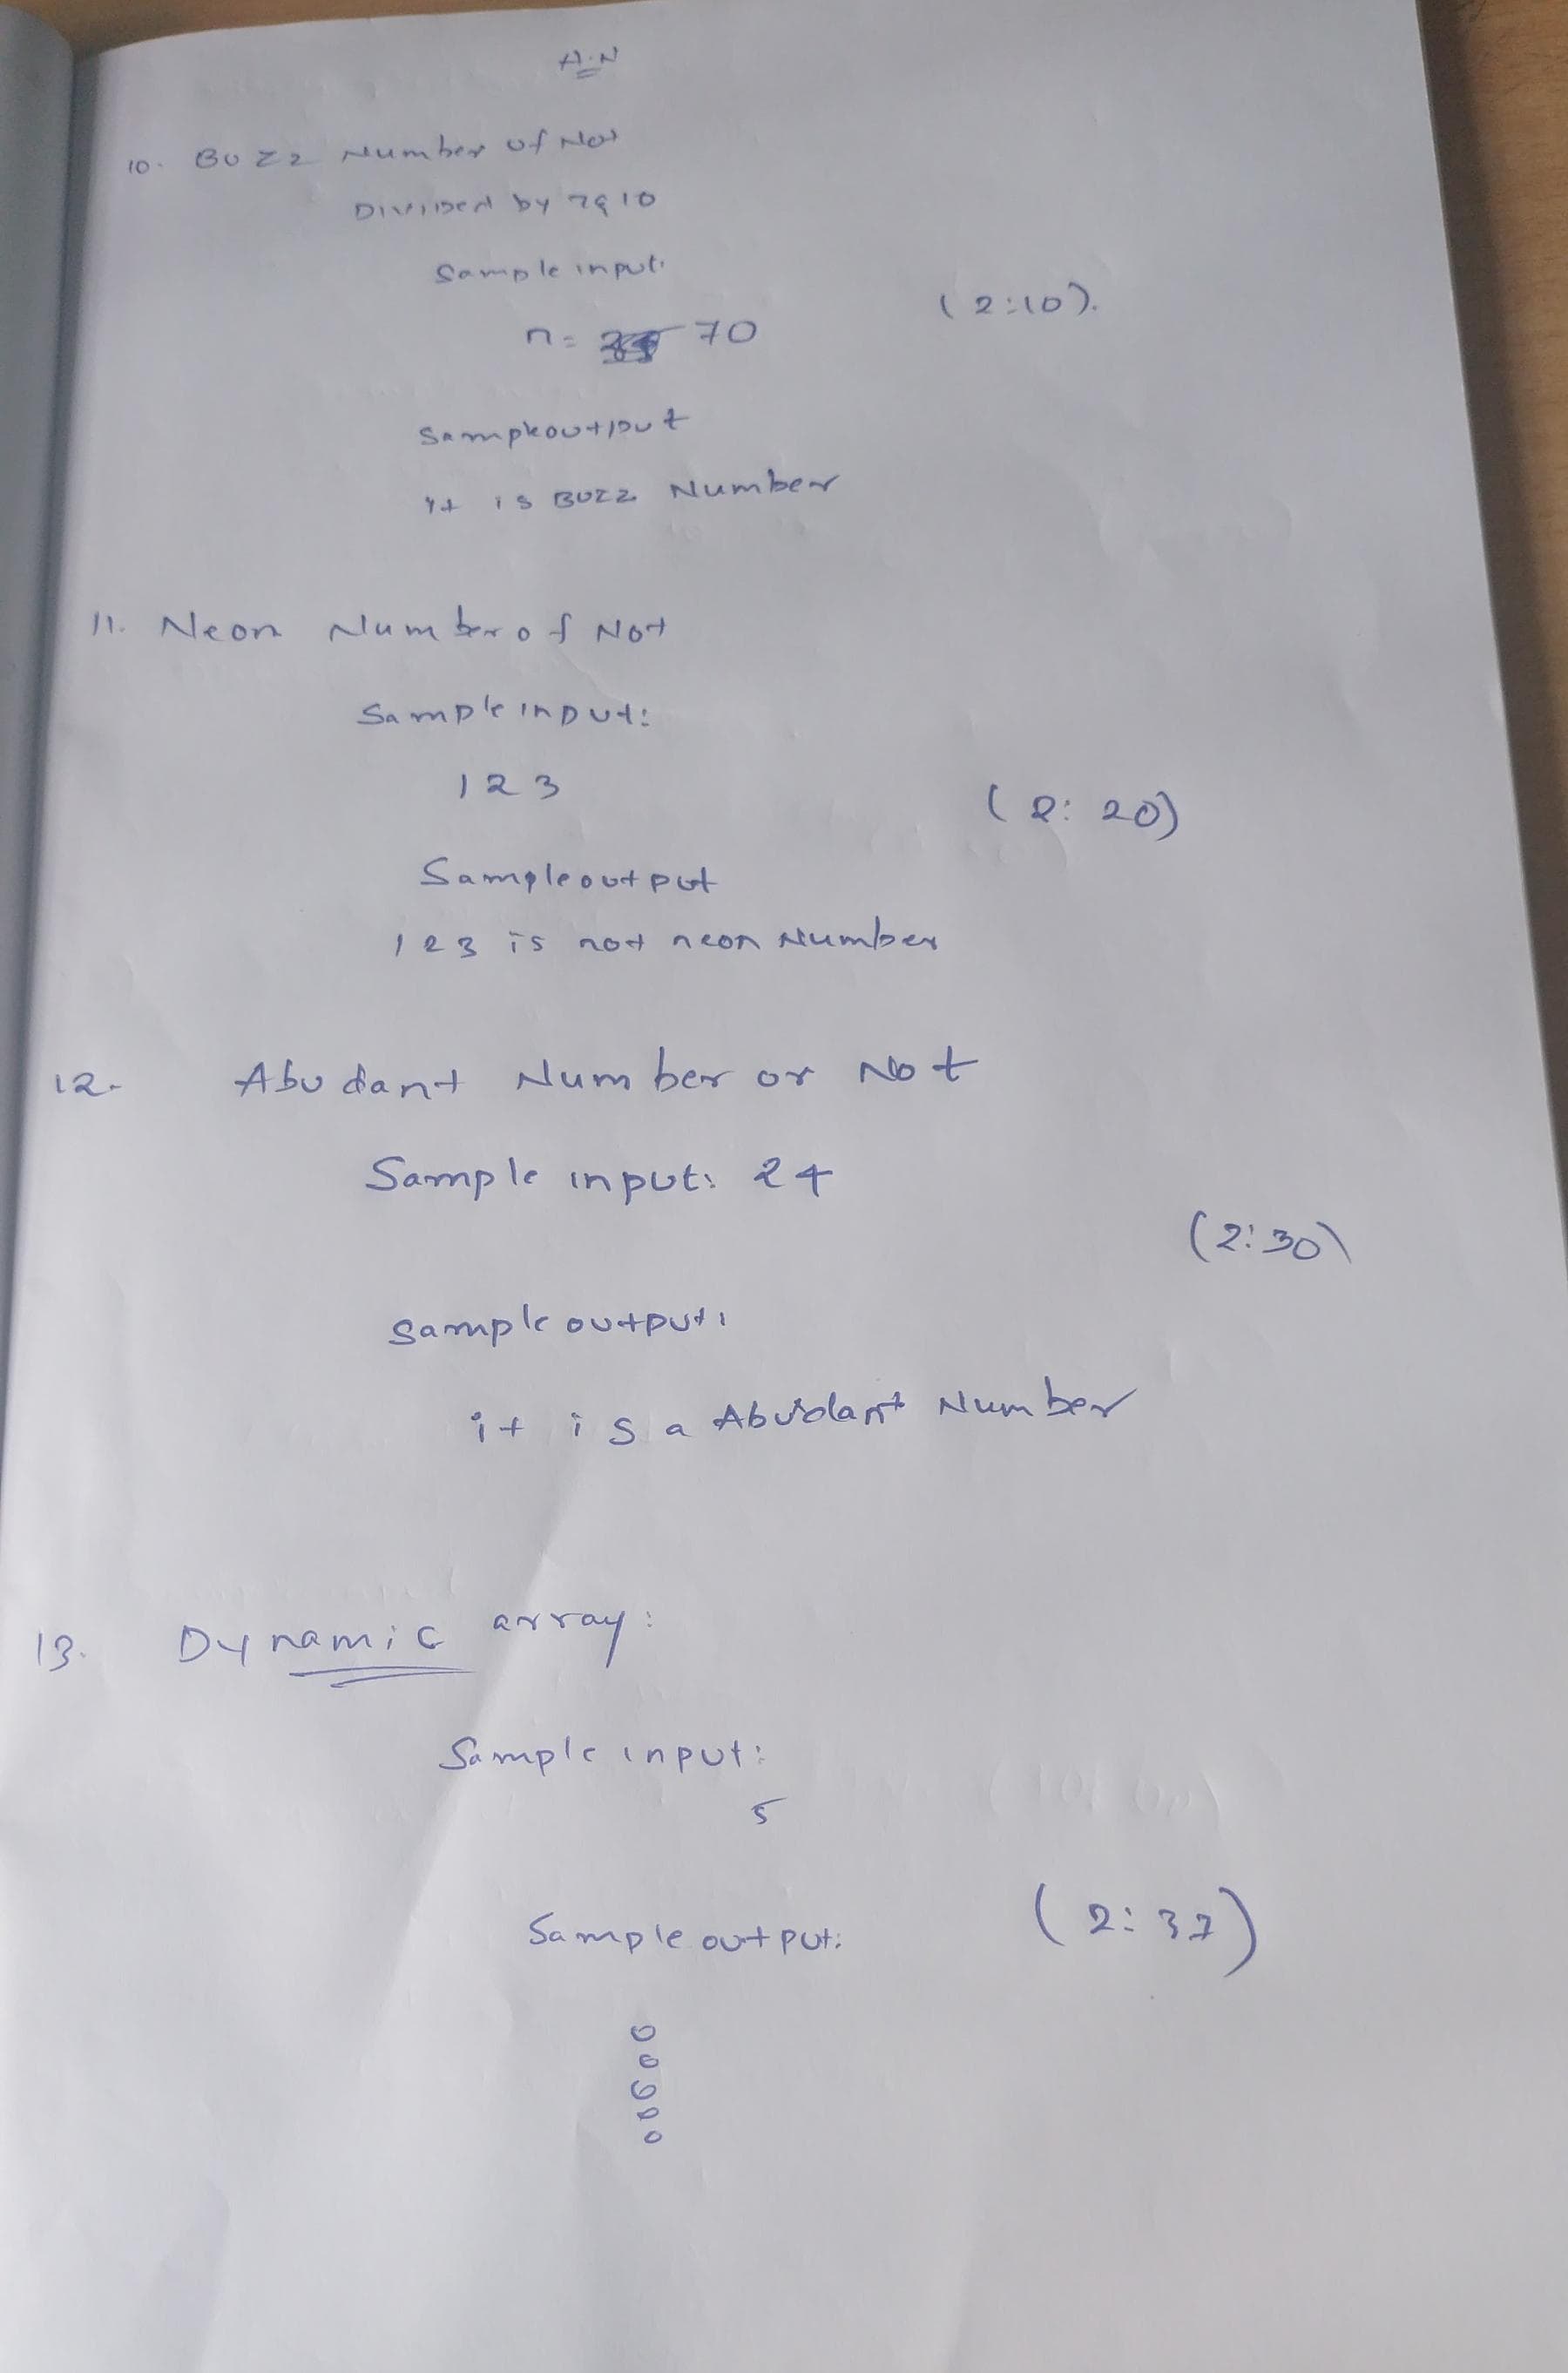 A.N
10. BUZZ Number of Not
Divided by 7 & 10
Sample input:
n = 70
(2:10).
Sample output
it is BUZZ Number
11. Neon Number of Not
Sample input:
123
(2:20)
Sample output
123 is not neon Number
12. Abudant Number or Not
Sample input: 24
(2:30)
Sample output:
it is a Abudant Number
13. Dynamic array:
Sample input:
5
Sample output:
(2:37)
0
0
0
0
0